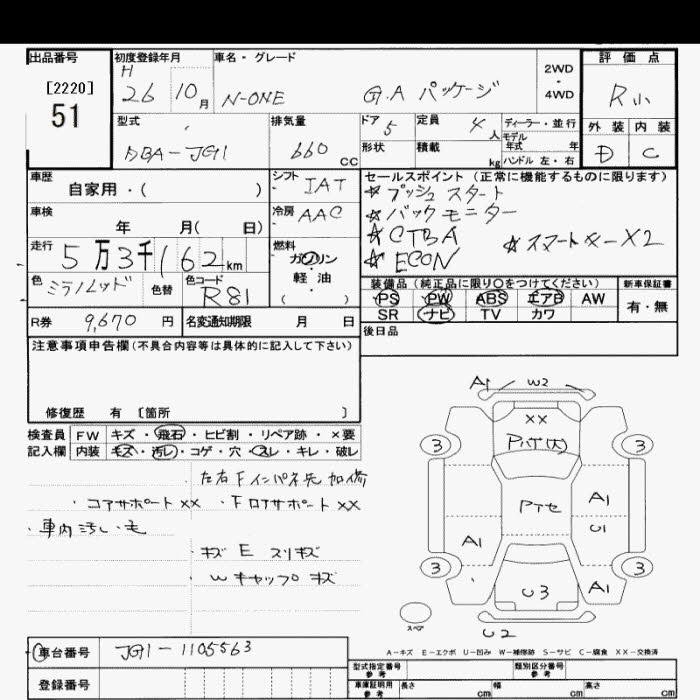 出品番号 初度登録年月 車名・グレード 2WD・4WD 評価点
[2220] 51
H 26 10月 N-ONE G.A パッケージ R小
型式 排気量 ドア 5 定員 4人 ディーラー・並行 外装 内装
DBA-JG1 660cc 形状 積載 kg モデル年式 年 ハンドル 左・右 D C
車歴 自家用・( ) シフト IAT セールスポイント(正常に機能するものに限ります)
☆プッシュスタート
車検 年 月( 日) 冷房 AAC ☆バックモニター
☆CTBA ☆スマートキーX2
☆ECON
走行 5万3千162km 燃料 ガソリン 軽油 ( )
色 ミラノレッド 色替 色コード R81
装備品(純正品に限り○をつけてください) 新車保証書
PS PW ABS エアB AW 有・無
SR ナビ TV カワ
R券 9,670円 名変通知期限 月 日
後日品
注意事項申告欄(不具合内容等は具体的に記入して下さい)
修復歴 有 [箇所 ]
検査員 FW キズ・飛石・ヒビ割・リペア跡・×要
記入欄 内装 キズ・汚レ・コゲ・穴・スレ・キレ・破レ
左右Fインパネ先 加修
・コアサポートXX ・FロアサポートXX
・車内汚レ・毛
・キズ E スリキズ
・Wキャップキズ
A1 W2
XX
3 3
Pバケ(大)
Pアセ A1
U1
A1
3 3
U3 A1
スペア
U2
A-キズ E-エクボ U-凹み W-補修跡 S-サビ C-腐食 XX-交換済
車台番号 JG1-1105563
登録番号
型式指定番号 参考 類別区分番号 参考
車庫証明用 参考 長さ cm 幅 cm 高さ cm